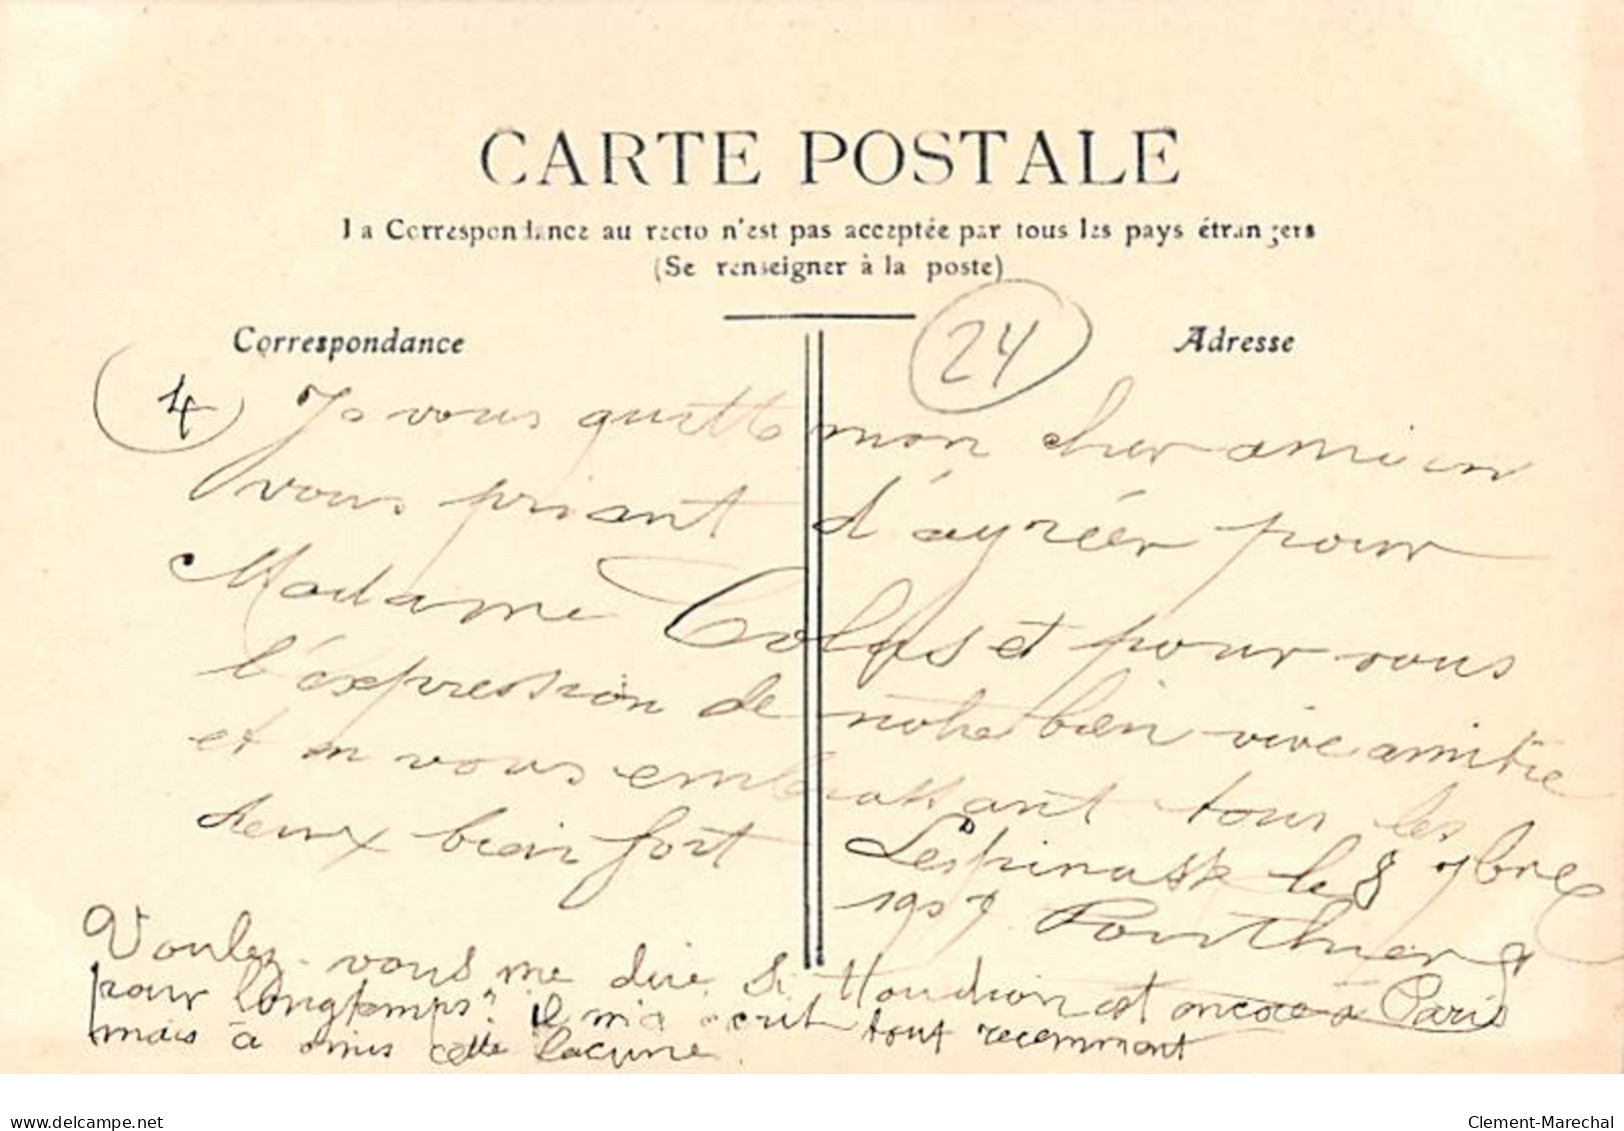 CARTE POSTALE
La Correspondance au recto n'est pas acceptée par tous les pays étrangers
(Se renseigner à la poste)
Correspondance
Adresse
24
4
Je vous quitte mon cher ami en
vous priant d'agréer pour
Madame Colas et pour vous
l'expression de notre bien vive amitié
et en vous embrassant tous les
deux bien fort
Lespinasse le 8 7bre
1907
Ponthier
Voulez-vous me dire si Houdion est encore à Paris
pour longtemps? il m'a écrit tout récemment
mais à omis cette lacune.
www.delcampe.net
Clement-Marechal